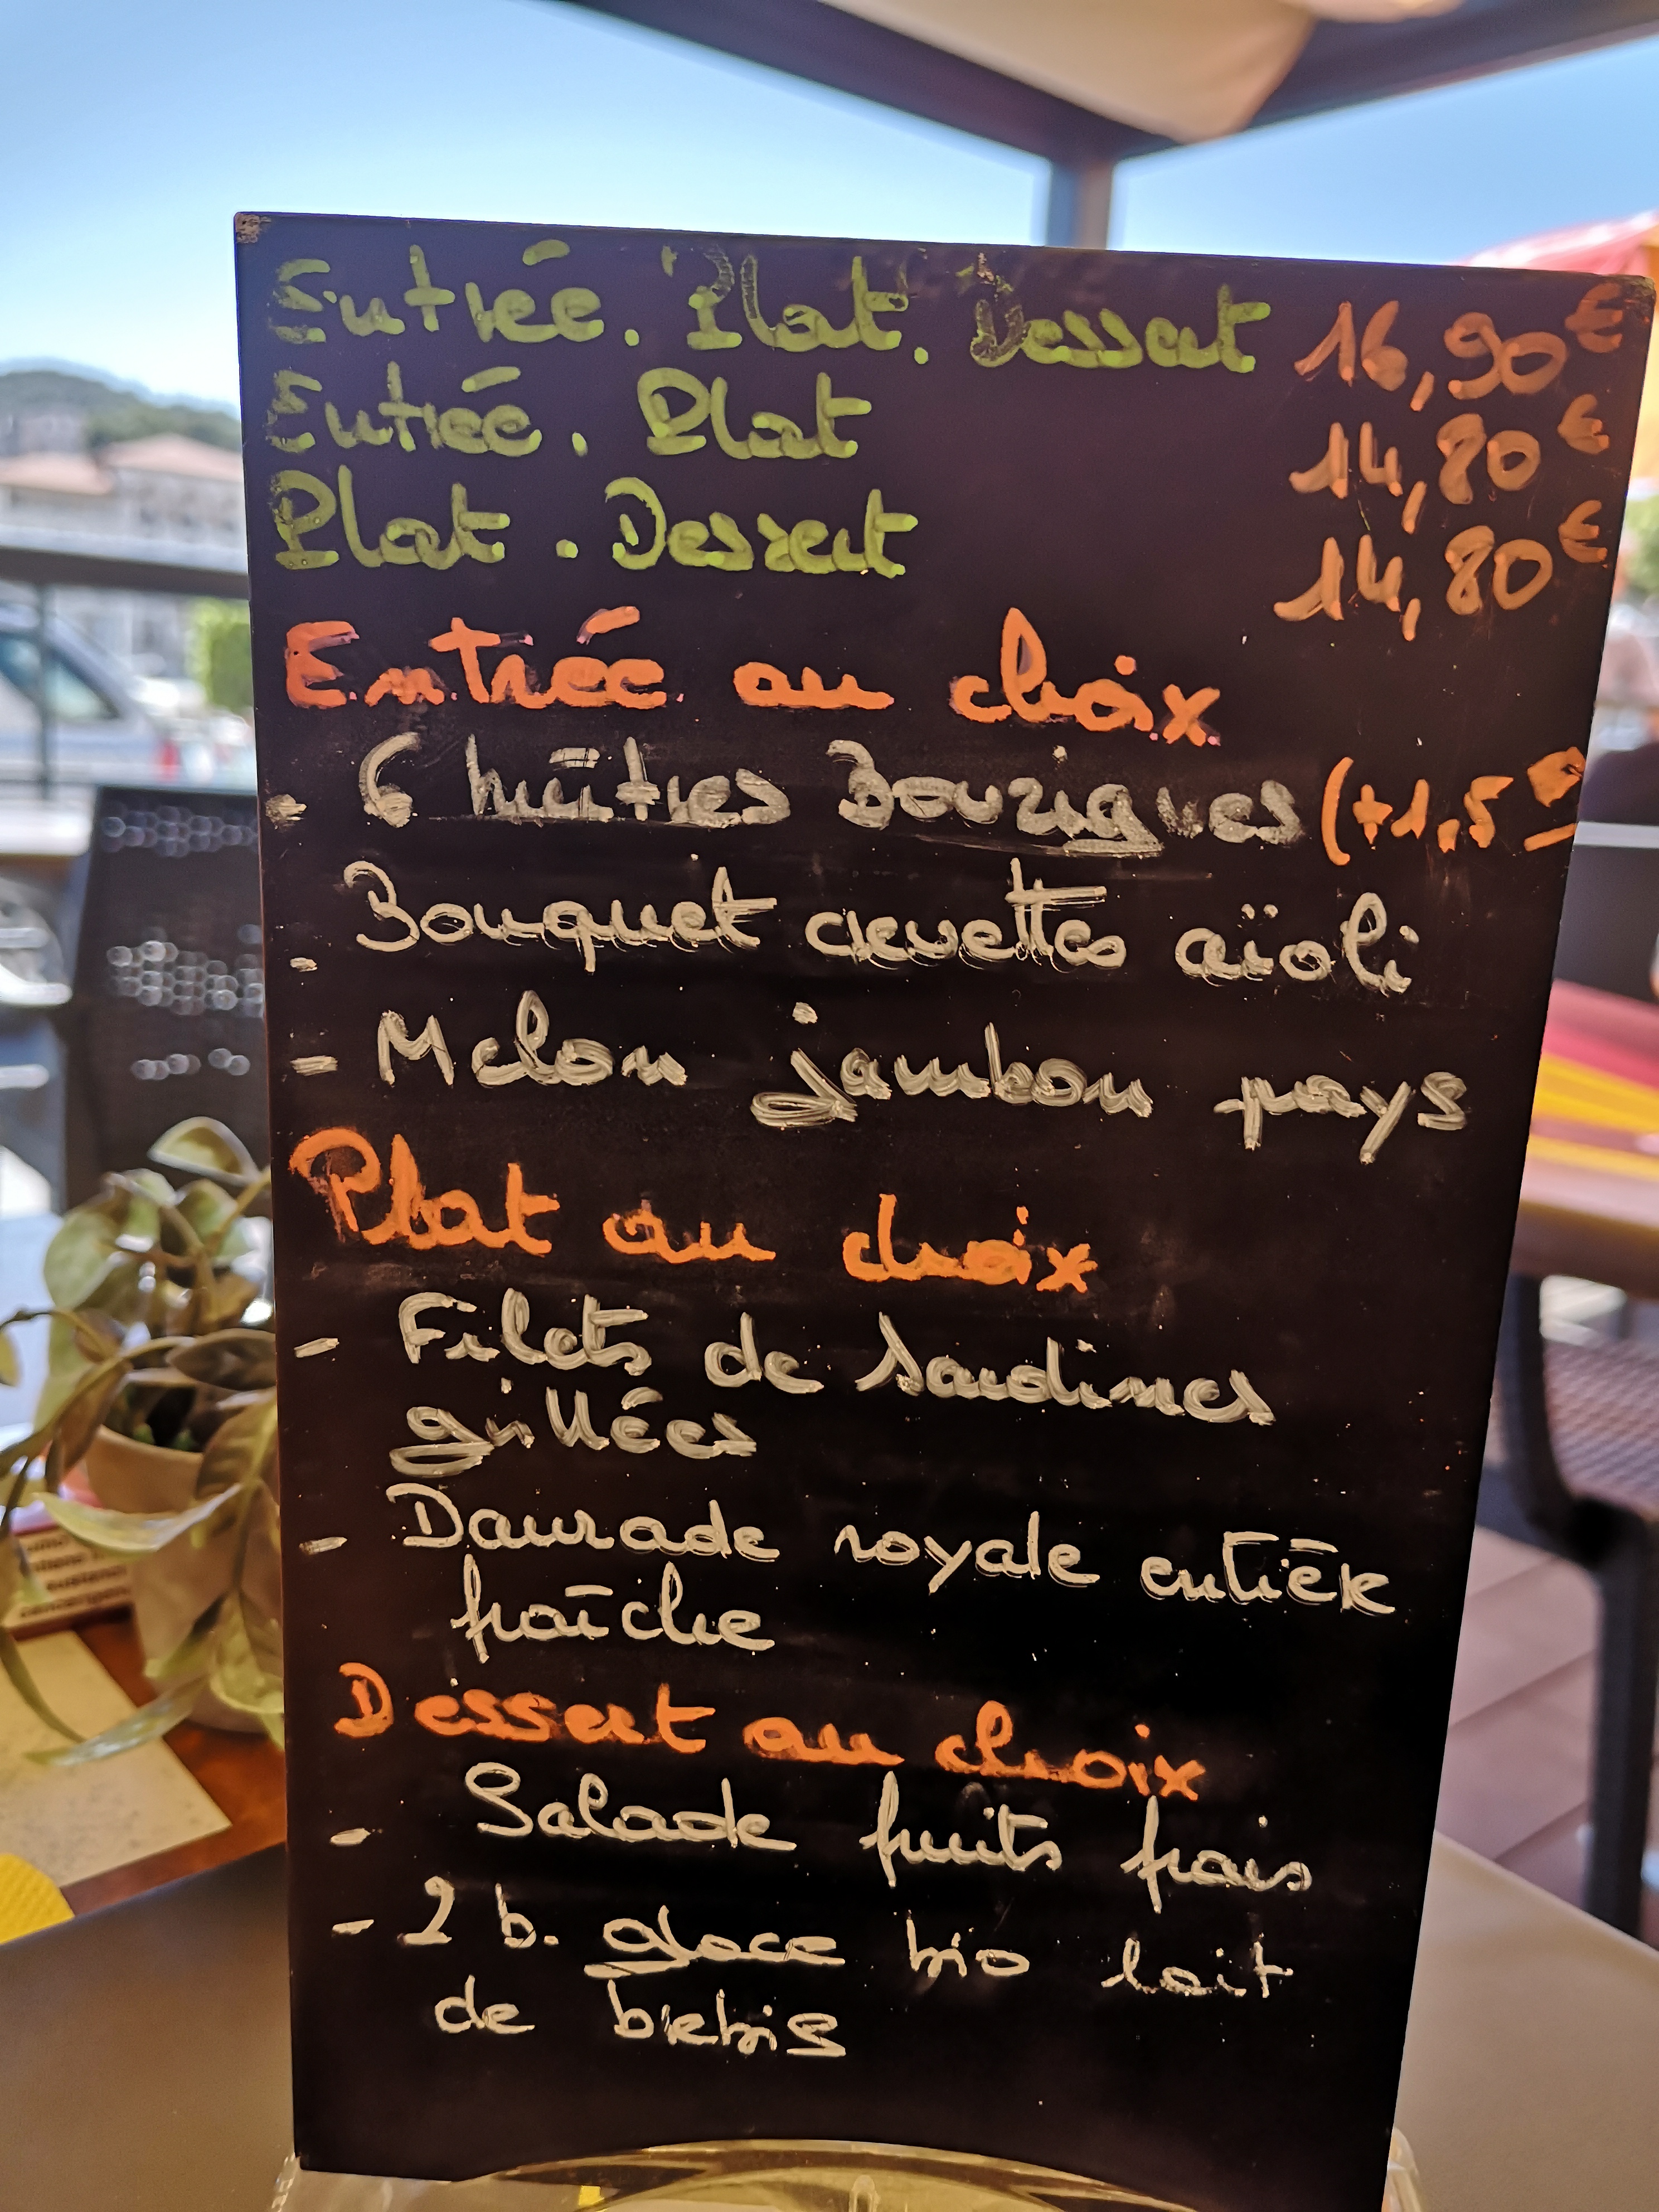 Entrée. Plat. Dessert 16,90€
Entrée. Plat 14,80€
Plat. Dessert 14,80€
Entrée au choix
- 6 huîtres Bouzigues (+1,5
- Bouquet crevettes aïoli
- Melon jambon pays
Plat au choix
- Filets de sardines
grillées
- Daurade royale entière
fraîche
Dessert au choix
- Salade fruits frais
- 2 b. glace bio lait
de brebis